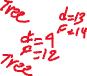 Tree
d=13
F=14
d=4
F=12
Tree